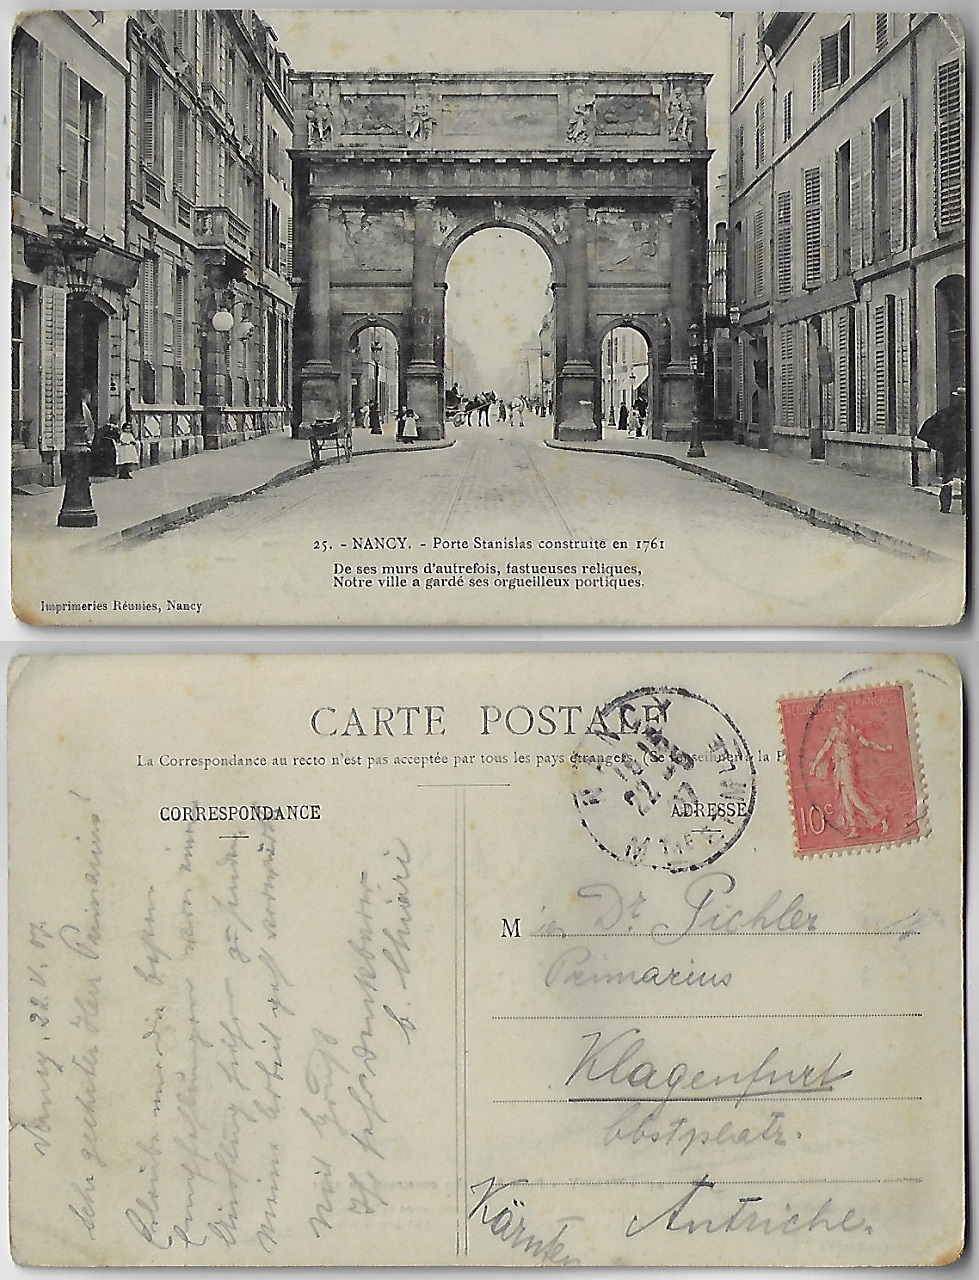 25. - NANCY. - Porte Stanislas construite en 1761
De ses murs d'autrefois, fastueuses reliques,
Notre ville a gardé ses orgueilleux portiques.
Imprimeries Réunies, Nancy
CARTE POSTALE
La Correspondance au recto n'est pas acceptée par tous les pays étrangers. (Se renseigner à la P
CORRESPONDANCE
ADRESSE
RÉPUBLIQUE FRANÇAISE
10c
NANCY
22
07
Nancy, 22. V. 07.
Sehr geehrter Herr Primarius!
Erlaube mir die besten
Empfehlungen
meine Arbeit geht vorwärts
Mit Gruß
Ihr
M Dr. Pichler
Primarius
Klagenfurt
Obstplatz.
Kärnten
Autriche.